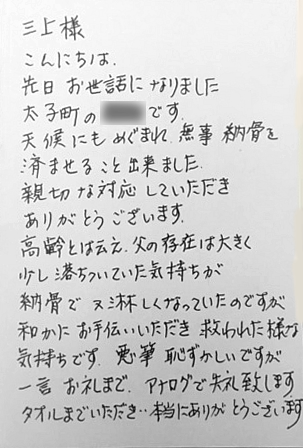 三上様
こんにちは.
先日 お世話に なりました
太子町の です.
天候にも めぐまれ、無事 納骨を
済ませる こと 出来ました.
親切 な対応 していただき
ありがとう ございます.
高齢とは云え、父の存在は大きく
少し 落ちついていた気持ちが
納骨で 又淋しくなっていたのですが
和かに お手伝いいただき 救われた様な
気持ちです. 悪筆 恥ずかしいですが
一言 お礼まで. アナログで失礼致します.
タオルまでいただき…本当にありがとうございます